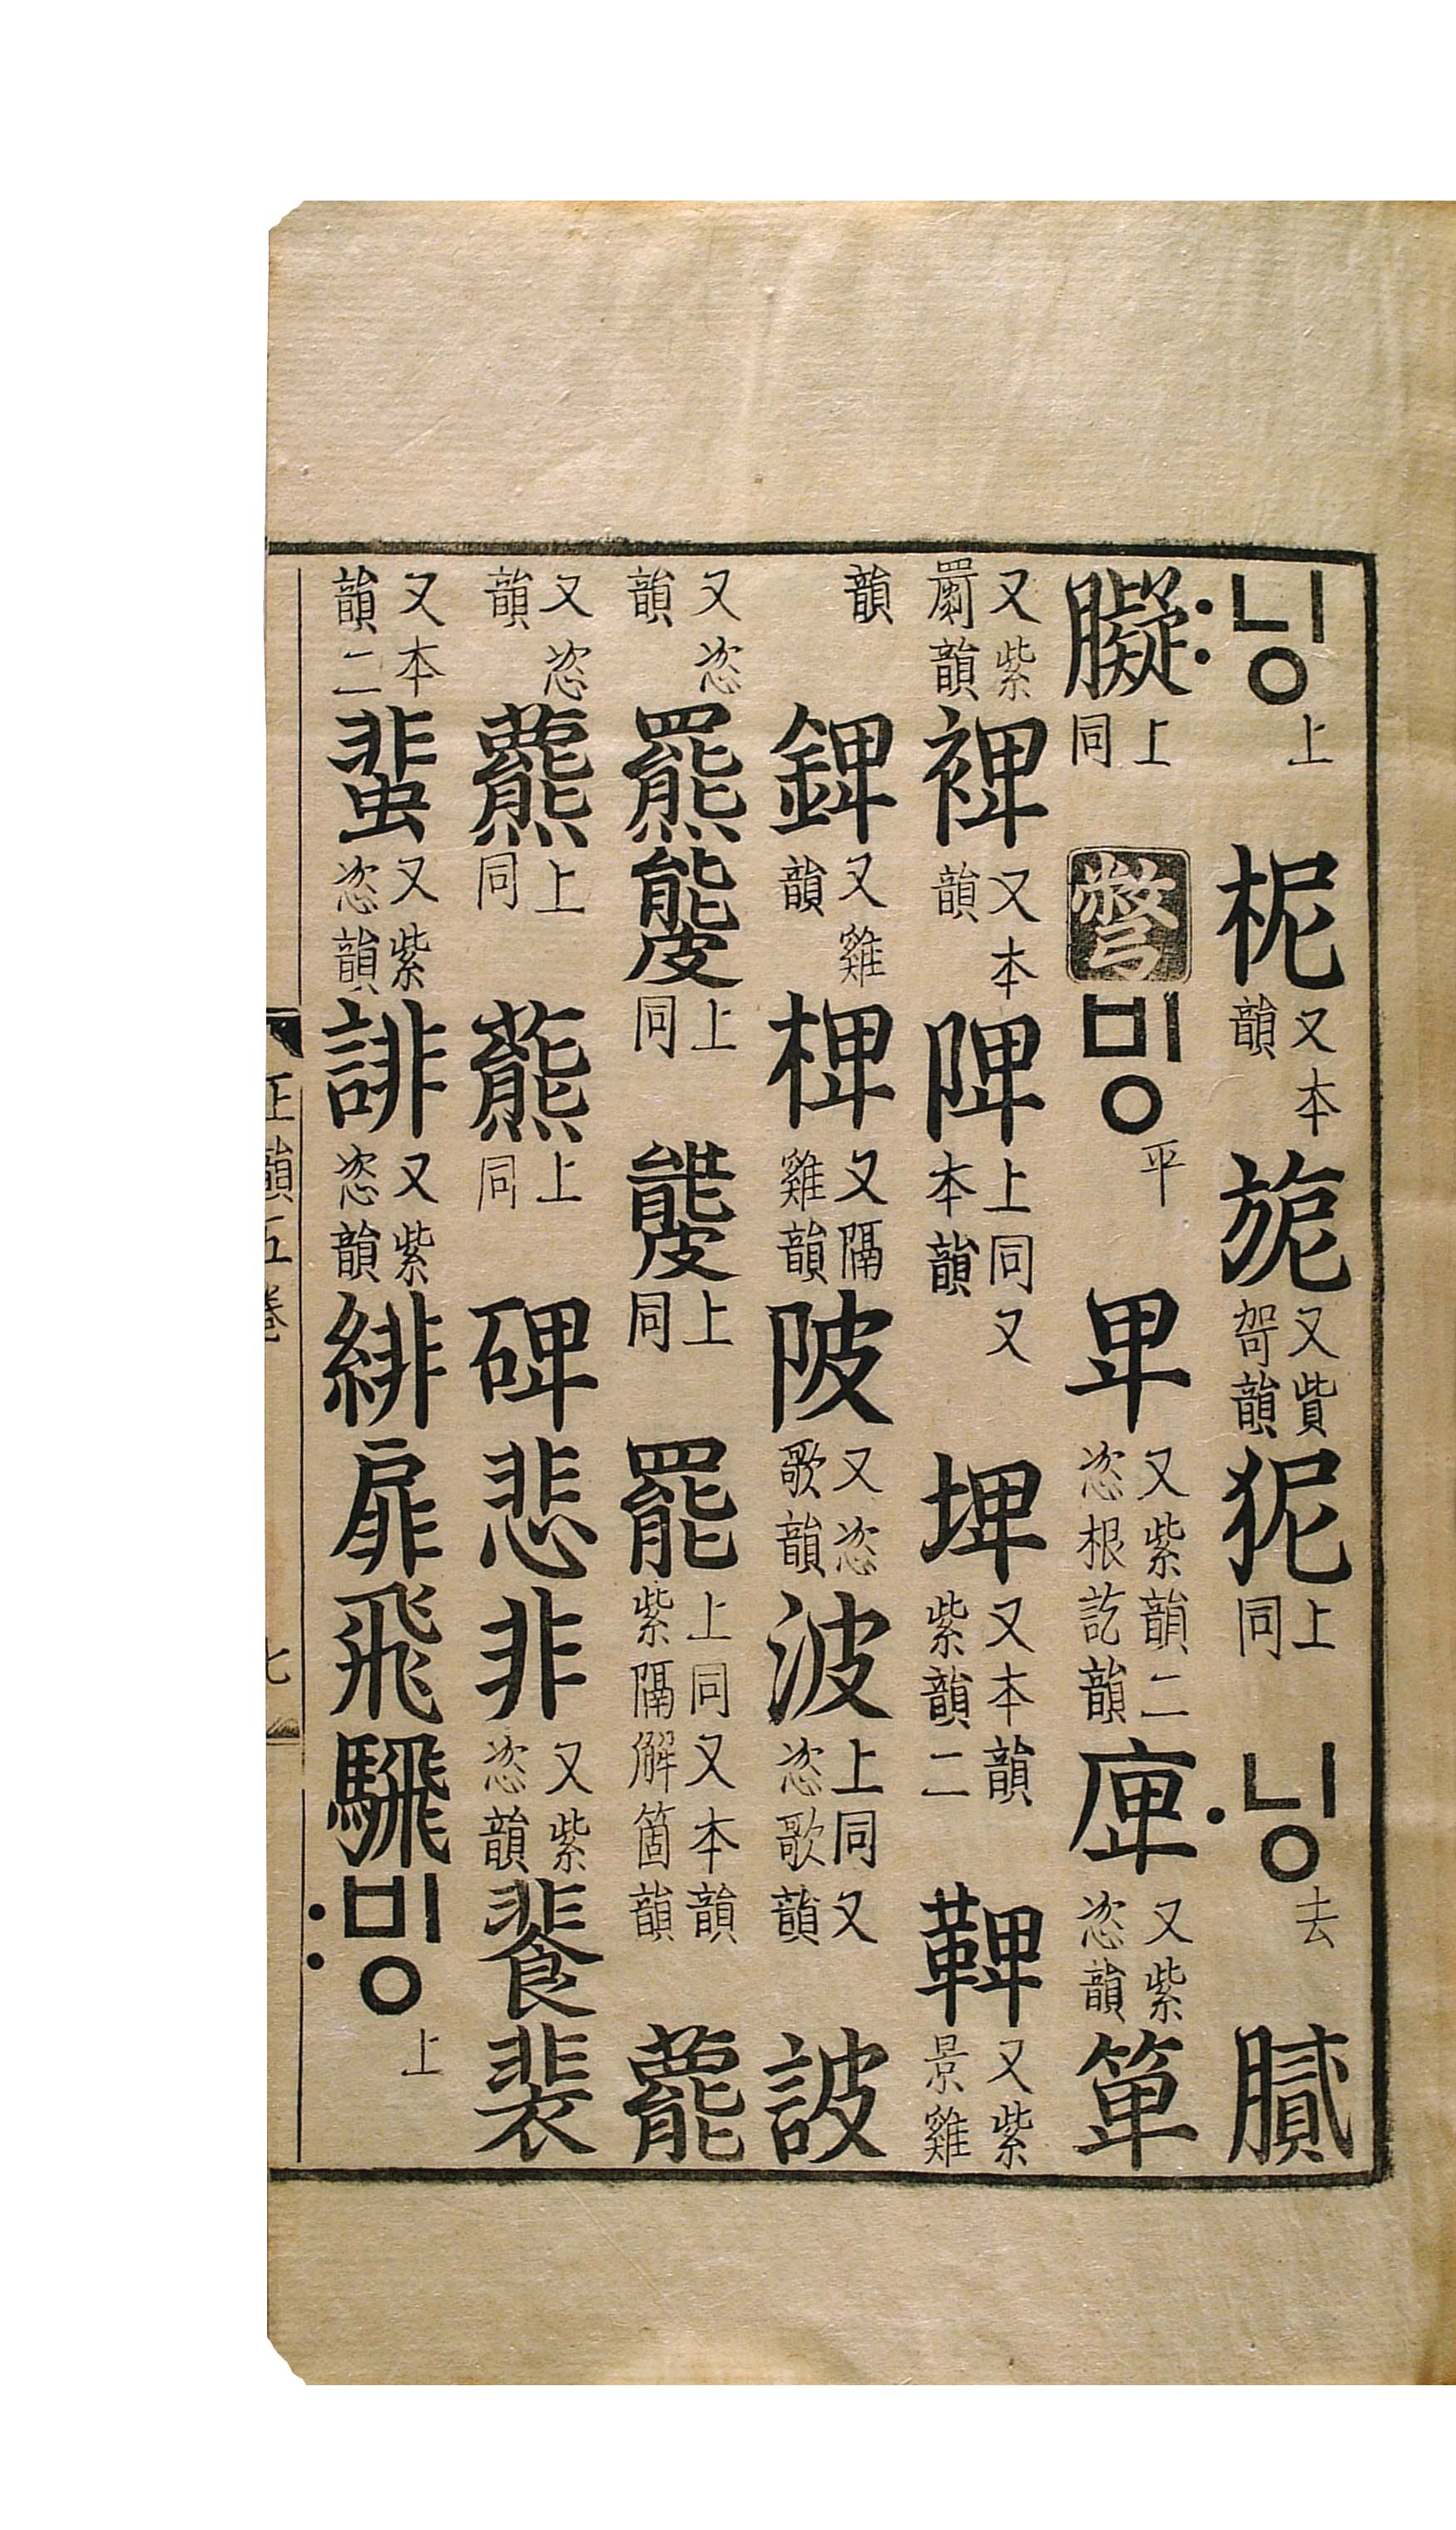 〯닝上柅又本韻旎又貲哿韻狔上同〮닝去膩
上同彆빙平卑又紫韻二恣根訖韻庳又紫恣韻箄
又紫罽韻裨又本韻陴上同又本韻埤又本韻紫韻二鞞又紫景雞
韻錍又雞韻椑又隔雞韻陂又恣歌韻波上同又恣歌韻詖
又恣韻羆上同上同罷上同又本韻紫隔解箇韻藣
又恣韻上同上同碑悲非又紫恣韻餥裴
又本韻二蜚又紫恣韻誹又紫恣韻緋扉飛騛〯빙上
正韻五卷 七